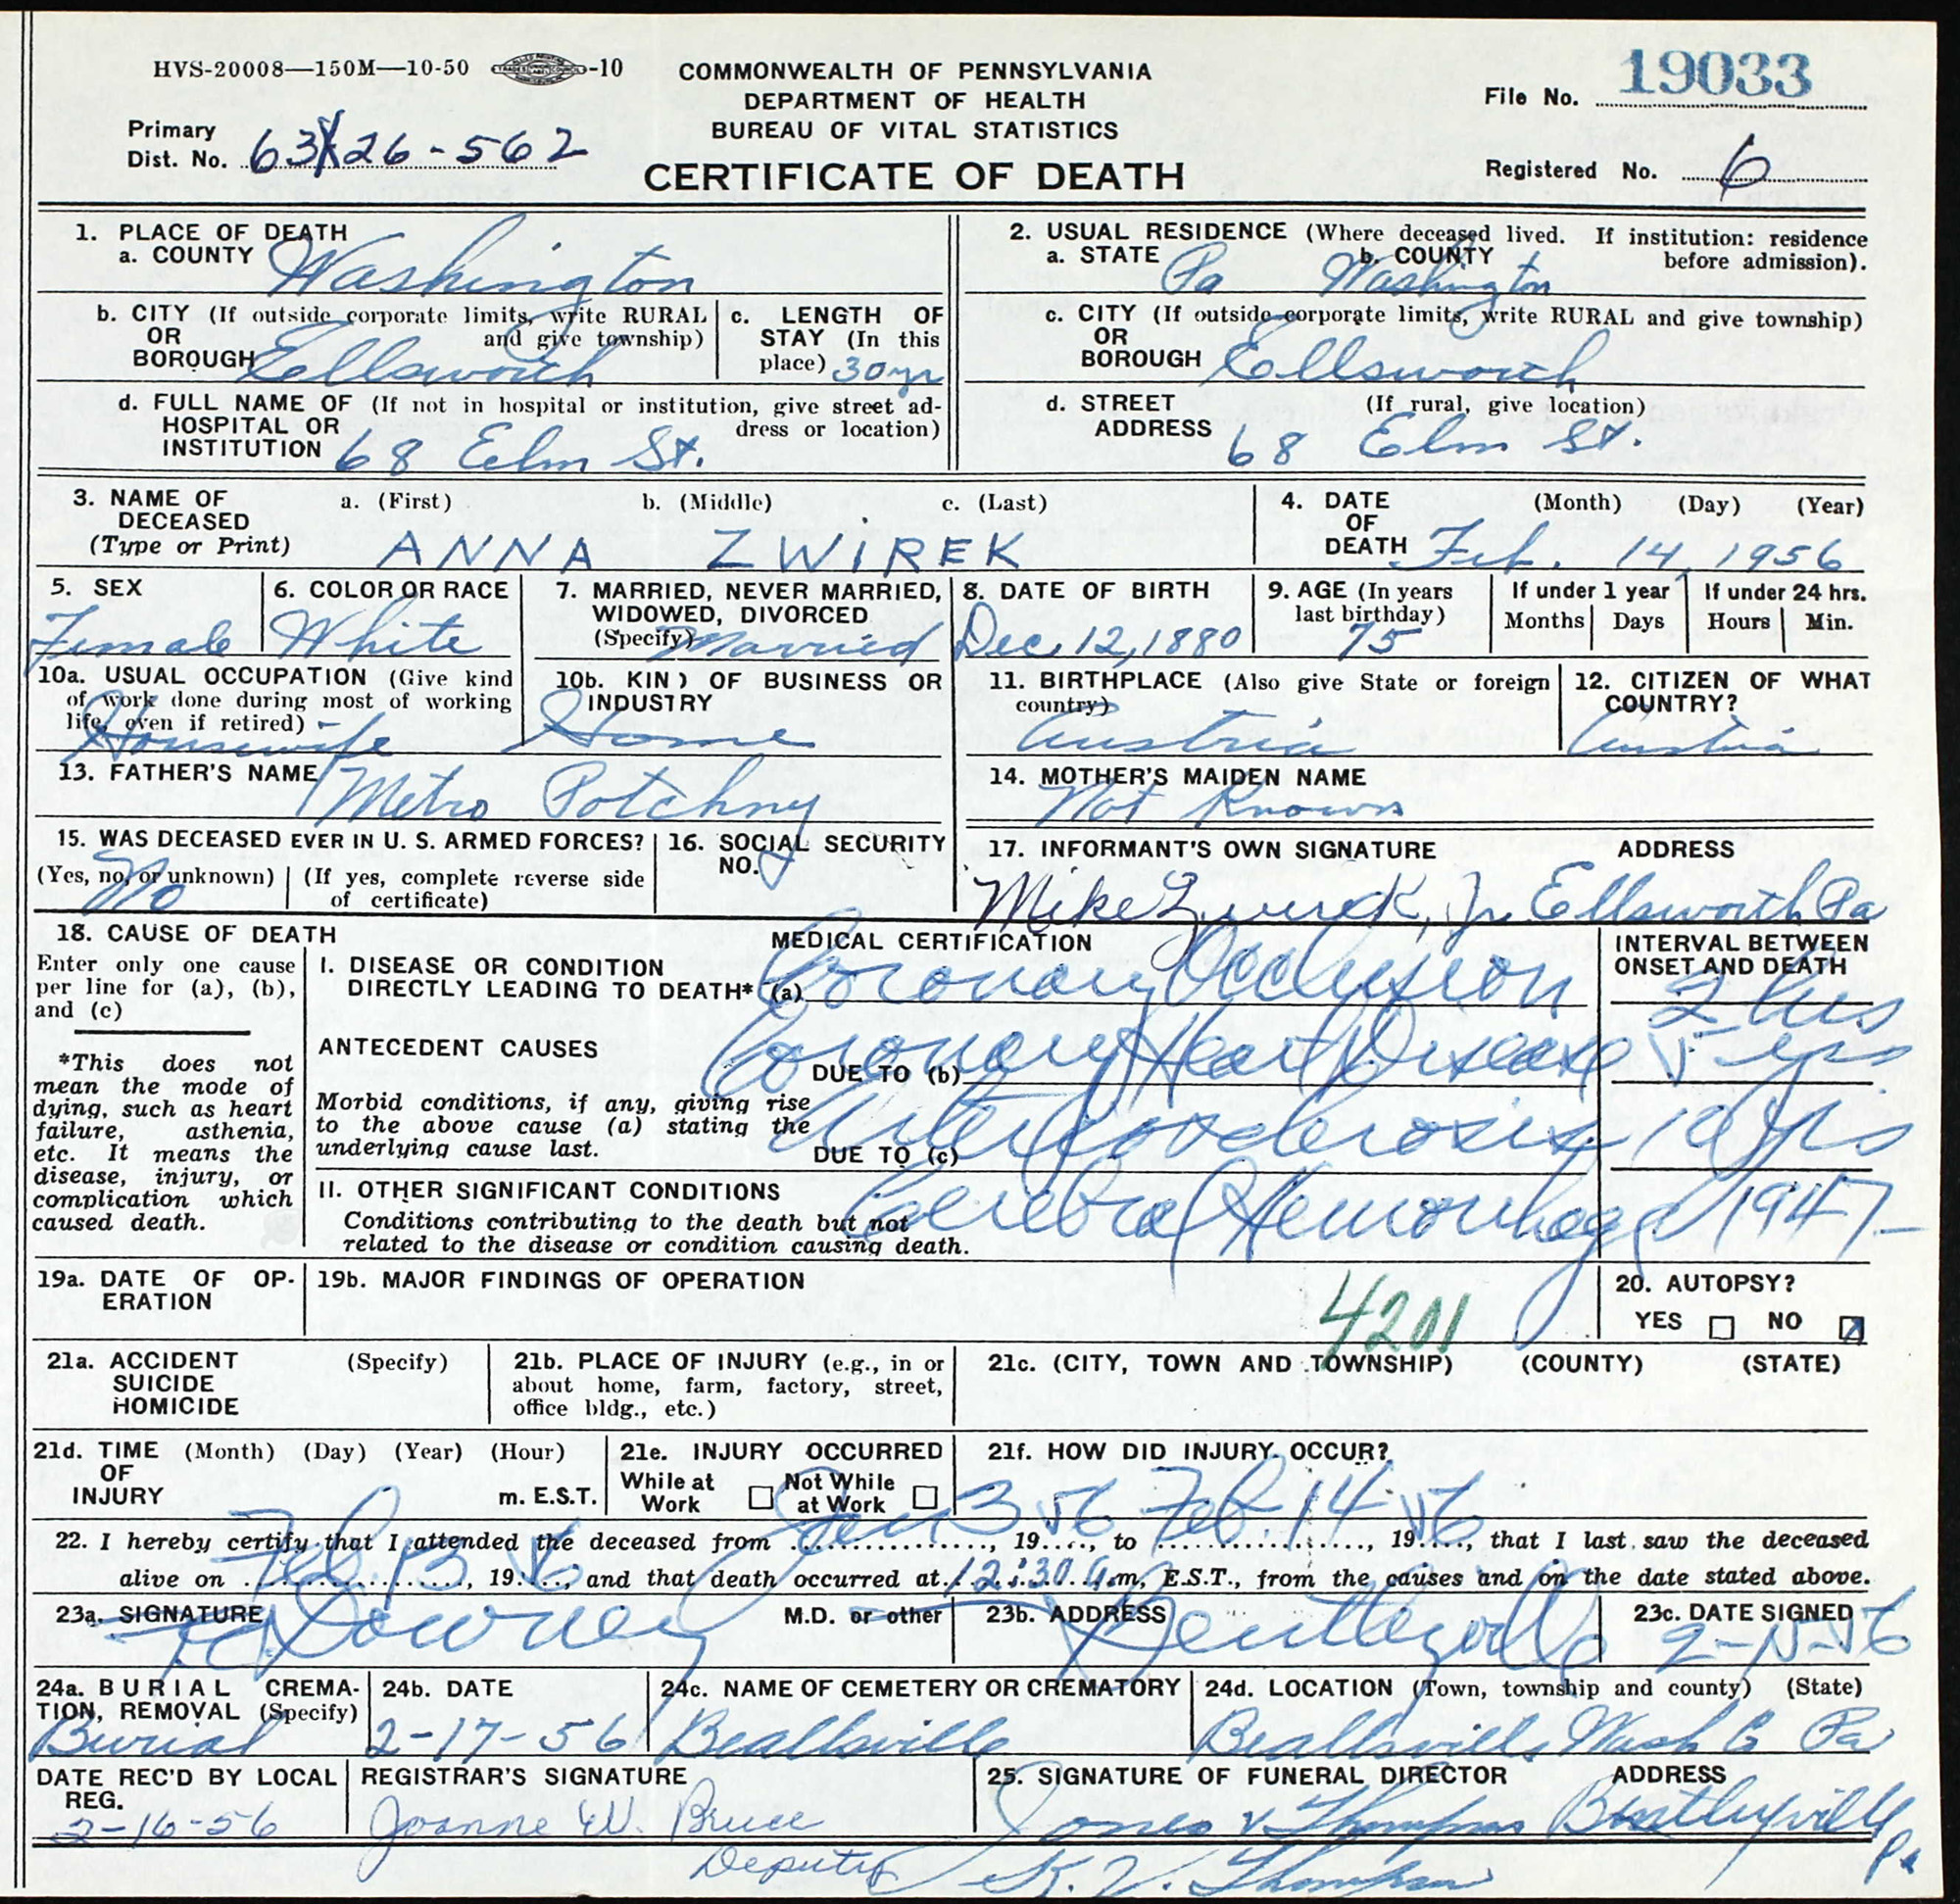 HVS-20008—150M—10-50 -10
COMMONWEALTH OF PENNSYLVANIA
DEPARTMENT OF HEALTH
BUREAU OF VITAL STATISTICS
CERTIFICATE OF DEATH
File No. 19033
Primary
Dist. No. 63 26-562
Registered No. 6
1. PLACE OF DEATH
a. COUNTY Washington
2. USUAL RESIDENCE (Where deceased lived. If institution: residence before admission).
a. STATE Pa b. COUNTY Washington
b. CITY (If outside corporate limits, write RURAL and give township)
OR
BOROUGH Ellsworth
c. LENGTH OF STAY (In this place) 30 yr
c. CITY (If outside corporate limits, write RURAL and give township)
OR
BOROUGH Ellsworth
d. FULL NAME OF (If not in hospital or institution, give street address or location)
HOSPITAL OR
INSTITUTION 68 Elm St.
d. STREET (If rural, give location)
ADDRESS 68 Elm St.
3. NAME OF a. (First) b. (Middle) c. (Last)
DECEASED
(Type or Print) ANNA ZWIREK
4. DATE (Month) (Day) (Year)
OF
DEATH Feb. 14, 1956
5. SEX
Female
6. COLOR OR RACE
White
7. MARRIED, NEVER MARRIED,
WIDOWED, DIVORCED
(Specify) Married
8. DATE OF BIRTH
Dec, 12, 1880
9. AGE (In years
last birthday)
75
If under 1 year
Months Days
If under 24 hrs.
Hours Min.
10a. USUAL OCCUPATION (Give kind
of work done during most of working
life, even if retired) -
Housewife
10b. KIND OF BUSINESS OR
INDUSTRY
Home
11. BIRTHPLACE (Also give State or foreign
country)
Austria
12. CITIZEN OF WHAT
COUNTRY?
Austria
13. FATHER'S NAME
Metro Potchny
14. MOTHER'S MAIDEN NAME
Not Known
15. WAS DECEASED EVER IN U. S. ARMED FORCES?
(Yes, no, or unknown) (If yes, complete reverse side
of certificate)
No
16. SOCIAL SECURITY
NO.
17. INFORMANT'S OWN SIGNATURE ADDRESS
Mike Zwirek, Jr. Ellsworth Pa
18. CAUSE OF DEATH
Enter only one cause
per line for (a), (b),
and (c)
*This does not
mean the mode of
dying, such as heart
failure, asthenia,
etc. It means the
disease, injury, or
complication which
caused death.
MEDICAL CERTIFICATION
INTERVAL BETWEEN
ONSET AND DEATH
I. DISEASE OR CONDITION
DIRECTLY LEADING TO DEATH* (a) Coronary Occlusion 2 hrs
ANTECEDENT CAUSES
DUE TO (b) Coronary Heart Disease 5 yrs
Morbid conditions, if any, giving rise
to the above cause (a) stating the
underlying cause last.
DUE TO (c) Arteriosclerosis 10 yrs
II. OTHER SIGNIFICANT CONDITIONS
Conditions contributing to the death but not
related to the disease or condition causing death.
Cerebral Hemorrhage 1947-
19a. DATE OF OP-
ERATION
19b. MAJOR FINDINGS OF OPERATION
4201
20. AUTOPSY?
YES NO
21a. ACCIDENT (Specify)
SUICIDE
HOMICIDE
21b. PLACE OF INJURY (e.g., in or
about home, farm, factory, street,
office bldg., etc.)
21c. (CITY, TOWN AND TOWNSHIP) (COUNTY) (STATE)
21d. TIME (Month) (Day) (Year) (Hour)
OF
INJURY m. E.S.T.
21e. INJURY OCCURRED
While at Work Not While at Work
21f. HOW DID INJURY OCCUR?
22. I hereby certify that I attended the deceased from Jan 3, 1956, to Feb 14, 1956, that I last saw the deceased
alive on Feb 13, 1956, and that death occurred at 12:30 A.m, E.S.T., from the causes and on the date stated above.
23a. SIGNATURE M.D. or other
Downey
23b. ADDRESS
Bentleyville
23c. DATE SIGNED
2-15-56
24a. BURIAL CREMA-
TION, REMOVAL (Specify)
Burial
24b. DATE
2-17-56
24c. NAME OF CEMETERY OR CREMATORY
Beallsville
24d. LOCATION (Town, township and county) (State)
Beallsville Wash Co Pa
DATE REC'D BY LOCAL
REG.
2-16-56
REGISTRAR'S SIGNATURE
Joanne W. Bruce
Deputy
25. SIGNATURE OF FUNERAL DIRECTOR ADDRESS
Jones & Thompson Bentleyville Pa
K. V. Thompson